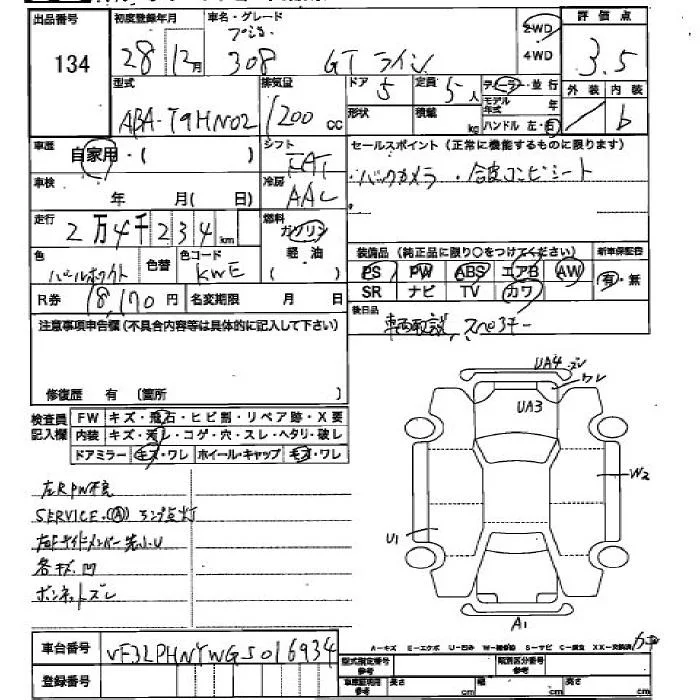 出品番号 134
初度登録年月 28年12月
車名・グレード プジョー 308 GTライン
2WD
4WD
評価点 3.5
外装 内装 b
型式 ABA-T9HN02
排気量 1200 cc
ドア 5
定員 5人
形状
積載 kg
ディーラー・並行
モデル年式 年
ハンドル 左・右
車歴 自家用・( )
シフト FAT
セールスポイント(正常に機能するものに限ります)
・バックカメラ ・合皮コンビシート
車検 年 月( 日)
冷房 AAC
走行 2万4千234km
燃料 ガソリン 軽油
色 パールホワイト
色替
色コード KWE
装備品(純正品に限り○をつけてください)
新車保証書 有・無
PS PW ABS エアB AW
SR ナビ TV カワ
R券 18,170円
名変期限 月 日
後日品 車両取説 スペアキー
注意事項申告欄(不具合内容等は具体的に記入して下さい)
修復歴 有 〔箇所 〕
検査員記入欄
FW キズ・飛石・ヒビ割・リペア跡・X要
内装 キズ・汚レ・コゲ・穴・スレ・ヘタリ・破レ
ドアミラー キズ・ワレ ホイール・キャップ キズ・ワレ
左RPW不良
SERVICE・(A)ランプ点灯
各キズ凹
ボンネットズレ
UA4
ワレ
UA3
W2
U1
A1
A-キズ E-エクボ U-凹み W-補修跡 S-サビ C-腐食 XX-交換済
車台番号 VF3LPHNYWGS016934
登録番号
型式指定番号 参考
類別区分番号 参考
車庫証明用 参考 長さ cm 幅 cm 高さ cm